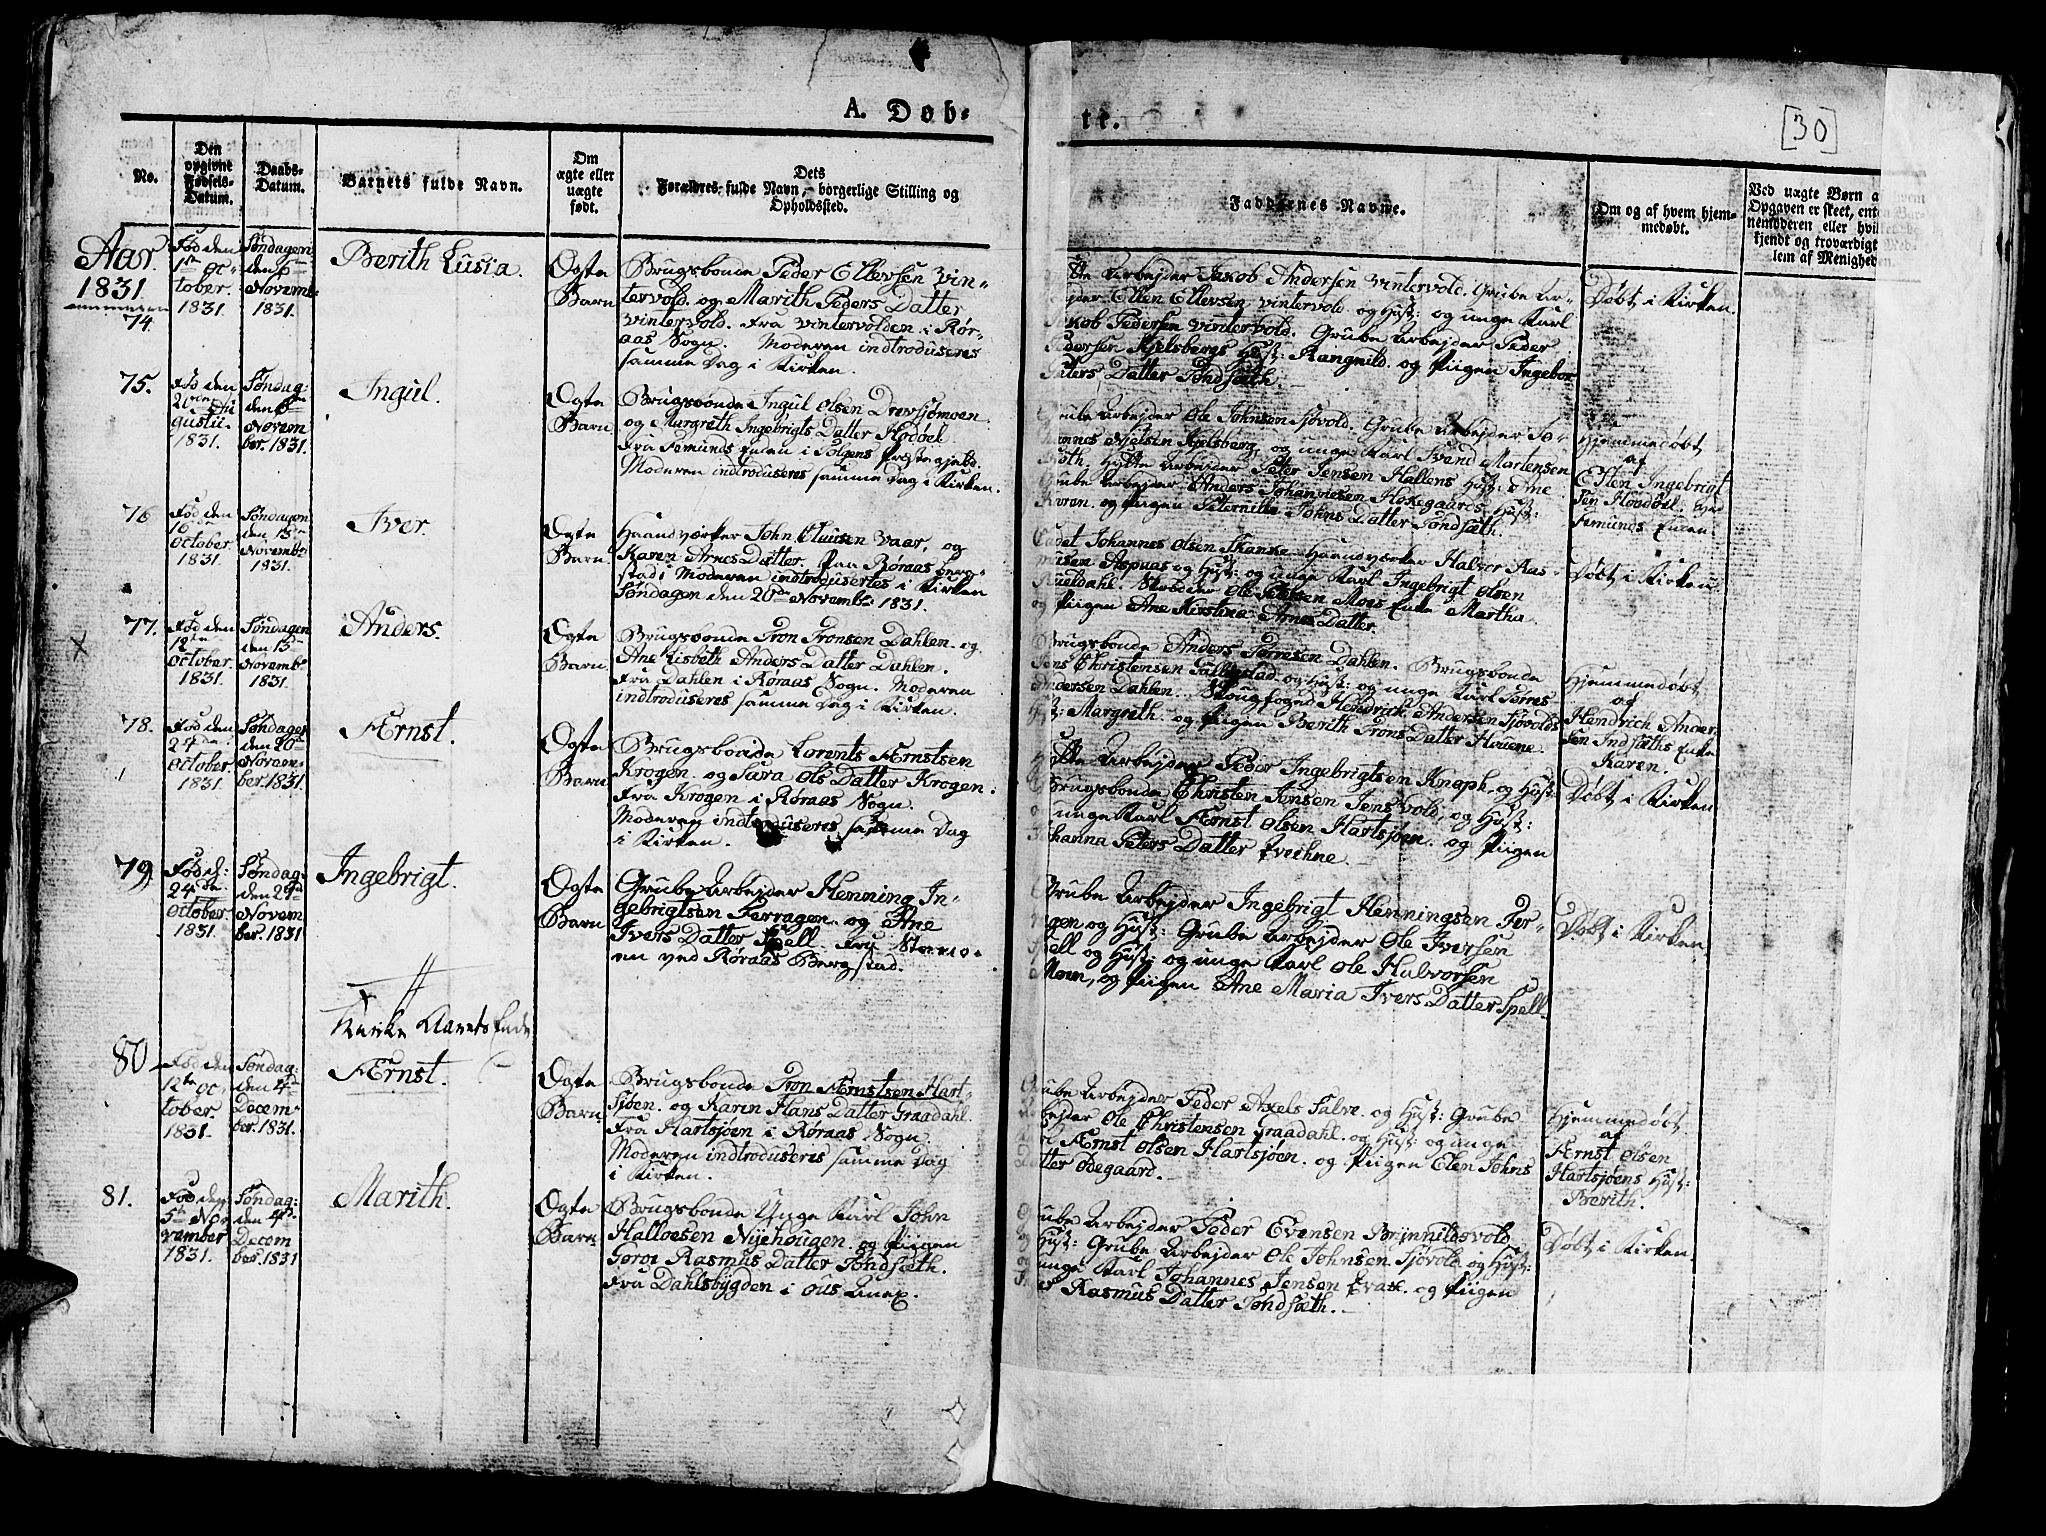 A. Døb-
te.
[30]
No.
Den opgivne Fødsels-Datum.
Daabs-Datum.
Barnets fulde Navn.
Om ægte eller uægte født.
Dets Forældres fulde Navn, borgerlige Stilling og Opholdssted.
Faddernes Navne.
Om og af hvem hjem-
medøbt.
Ved uægte Børn a
Opgaven er skeet, ent
nemoderen eller hvil
kjendt og troværdigt
lem af Menighed
Aar
1831
74.
Fød den
1ste Oc-
tober.
1831.
Søndagen
den 6te
Novemb:
1831.
Berith Lusia.
Ægte
Barn
Brugsbonde Peder Ellevsen Vin-
tervold. og Marith Peders Datter
Vintervold. Fra Vintervolden i Rør-
aas Sogn. Moderen indtroduseres
samme Dag i Kirken.
tte Arbejder Jakob Andersen Vintervold. Grube Ar-
ejder Ellen Ellevsen Vintervold og Hust: og unge Karl
Jakob Pedersen Vintervold. Grube Arbejder Peder
Pedersen Kjelsbergs Hust: Rangnild. og Piigen Ingebor
Peters Datter Tøndsæth.
Døbt i Kirken.
75.
Fød den
20de Au
gustii.
1831.
Søndag:
den 6te
Novem
ber. 1831.
Ingul.
Ægte
Barn
Brugsbonde Ingul Olsen Drevsjømoen
og Margreth Ingebrigts Datter Hodøel
Fra Femunds Enden i Tolgens Præstegjeld.
Moderen indtroduseres samme Dag i Kirken.
Grube Arbejder Ole Johnsen Sjøvold. Grube Arbejder Jo-
hannes Njelsen Kjelsberg, og unge Karl Svend Martensen
Hytte Arbejder Peter Jensen Hallens Hust: Ane
Grube Arbejder Anders Johannesen Hokegaards Hust:
Karen. og Piigen Peternille Johns Datter Tøndsæth.
Hjemmedøbt
af
Ellen Ingebrigt
sen Hondøel. ved
Femunds Enden.
76
Fød den
16de
October.
1831.
Søndagen
den 13de
Novembr
1831.
Iver.
Ægte
Barn
Haandværker John Vaar, og
Karen Arnes Datter. Paa Røraas Berg-
stad; Moderen indtrodusertes i Kirken
Søndagen den 20de Novembr 1831.
Cadet Johannes Olsen Skanke Haandværker Halvor Ras-
musen Aspaas og Hust: og unge Karl Ingebrigt Olsen
Rueldahl. Skræder Ole Moes Enke Martha
og Piigen Ane Kirstina Arnes Datter.
Døbt i Kirken
77.
Fød den
12te
October.
1831.
Søndagen
den 13de
Novembr
1831.
Anders.
Ægte
Barn
Brugsbonde Tron Tronsen Dahlen. og
Ane Lisbeth Anders Datter Dahlen.
Fra Dahlen i Røraas Sogn. Moderen
indtroduseres samme Dag i Kirken.
Brugsbonde Anders Tørresen Dahlen. Brugsbonde
Jens Christensen Gallestad og Hust: og unge Karl Tørres
Andersen Dahlen. Skougfoged Hendrich Andersen Sjøvolds
Hust: Margreth. og Piigen Berith Trons Datter Houene.
Hjemmedøbt
af
Hendrich Ander
sen Indsæths Enke
Karen.
78.
Fød den
24de
October.
1831.
Søndagen
den 20de
Novem-
ber. 1831.
Ærnst.
Ægte
Barn
Brugsbonde Lorents Ærnstsen
Krogen. og Sara Ols Datter Krogen.
Fra Krogen i Røraas Sogn.
Moderen indtroduseres samme Dag
i Kirken.
Hytte Arbejder Peder Ingebrigtsen Knaph. og Hust:
Brugsbonde Christen Jensen Jensvold, og Hust:
unge Karl Ærnst Olsen Hartsjøen. og Piigen
Johanna Peters Datter
Døbt i Kirken
79
Fød d:
24de
October.
1831.
Søndag:
den 20de
Novem
ber. 1831
Ingebrigt.
Ægte
Barn
Grube Arbejder Henning In-
gebrigtsen Ferragen. og Ane
Ivers Datter Spell fra Størmo-
en ved Røraas Bergstad.
Grube Arbejder Ingebrigt Henningsen Fer-
ragen og Hust: Grube Arbejder Ole Iversen
Spell og Hust: og unge Karl Ole Halvorsen
Moen, og Piigen Ane Maria Ivers Datter Spell.
Døbt i Kirken
Kirke Aarets Ende
80
Fød den
12te Oc
tober.
1831.
Søndag:
den 4de
Decem-
ber. 1831.
Ærnst.
Ægte
Barn
Brugsbonde Tron Ærnstsen Hart-
sjøen. og Karin Hans Datter Graadahl.
Fra Hartsjøen i Røraas Sogn.
Moderen indtroduseres samme Dag
i Kirken.
Grube Arbejder Peder Axels Salve. og Hust: Grube
bejder Ole Christensen Graadahl. og Hust: og unge
Ærnst Olsen Hartsjøen. og Piigen Elen Johns
Datter Ødegaard.
Hjemmedøbt
af
Ærnst Olsen
Hartsjøens Hust:
Berith.
81.
Fød den
5te No
vember
1831.
Søndag:
den 4de
Decem
ber. 1831
Marith.
Ægte
Barn
Brugsbonde Unge Karl John
Halloesen Nyehougen. og Piigen
Goroe Rasmus Datter Tøndsæth.
Fra Dahlsbygden i Ous Anex.
Grube Arbejder Peder Evensen Brynnildsvold
Hust: Grube Arbejder Ole Johnsen Sjøvold. og Hust:
unge Karl Johannes Jensen og Piigen
Rasmus Datter Tøndsæth.
Døbt i Kirken